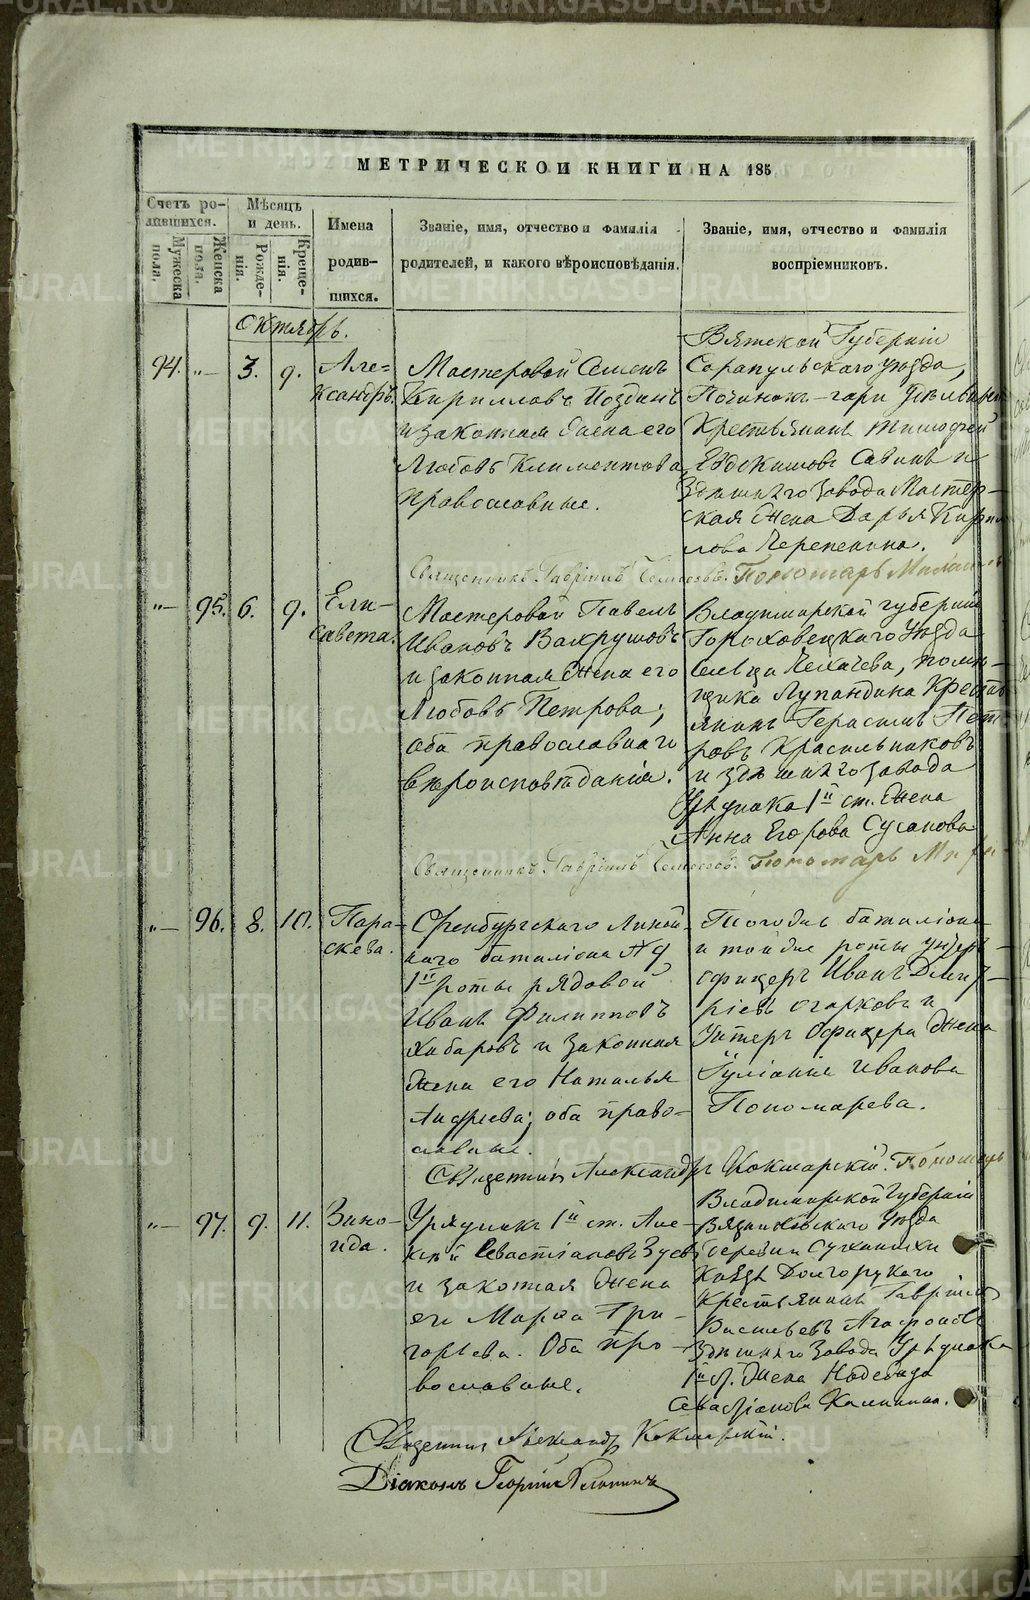 МЕТРИЧЕСКОЙ КНИГИ НА 185
Счетъ ро-
дившихся.
Мужеска
пола.
Женска
пола.
Мѣсяцъ
и день.
Рожде-
нія.
Креще-
нія.
Имена
родив-
шихся.
Званіе, имя, отчество и фамилія
родителей, и какого вѣроисповѣданія.
Званіе, имя, отчество и фамилія
воспріемниковъ.
Октябрь.
94. „— 3. 9.
Але-
ксандръ.
Мастеровой Семенъ
Кирилловъ Позданъ
и законная жена его
Любовь Климентова
православные.
Вятской Губерніи
Сарапульскаго уѣзда,
Починокъ-гари
Крестьянинъ Тимофей
Евдокимовъ Савинъ и
Здѣшняго завода Мастер-
ская жена Дарья Кири-
лова Перепекина.
Священникъ Гавріилъ Пономарь
„— 95. 6. 9.
Ели-
савета.
Мастеровой Павелъ
Ивановъ Вахрушовъ
и законная жена его
Любовь Петрова;
оба православнаго
вѣроисповѣданія.
Владимірской губерніи
Гороховецкаго Уѣзда
помѣ-
щика Лупандина Кресть
янинъ Герасимъ Пет
ровъ Красильниковъ
и здѣшняго завода
Урядника 1й ст. жена
Анна Егорова Сусанова
Священникъ Гавріилъ Пономарь
„— 96. 8. 10.
Пара-
скева.
Оренбургскаго Линей-
наго баталіона №9
1й роты рядовой
Иванъ Филипповъ
Хабаровъ и законная
жена его Наталья
Андреева; оба право-
славные.
Тогоже баталіона
и тойже роты унтеръ-
офицеръ Иванъ Дмит-
ріевъ Огарковъ и
Унтеръ Офицера жена
Іуліанія Иванова
Пономарева.
Священникъ Александръ Кокшарскій. Пономарь
„— 97. 9. 11.
Зино-
ида.
Урядникъ 1й ст. Але-
ксѣй Севастіановъ Зуевъ
и законная жена
его Марѳа Гри-
горьева. Оба пра-
вославные.
Владимірской Губерніи
Вязниковскаго Уѣзда
деревни
Князя Долгорукаго
Крестьянинъ Гавріилъ
Васильевъ Агафоновъ
Здѣшняго завода Урядника
1й ст. жена Надежда
Севастіанова Калинина.
Священникъ Александръ Кокшарскій.
Діаконъ Георгій
METRIKI.GASO-URAL.RU